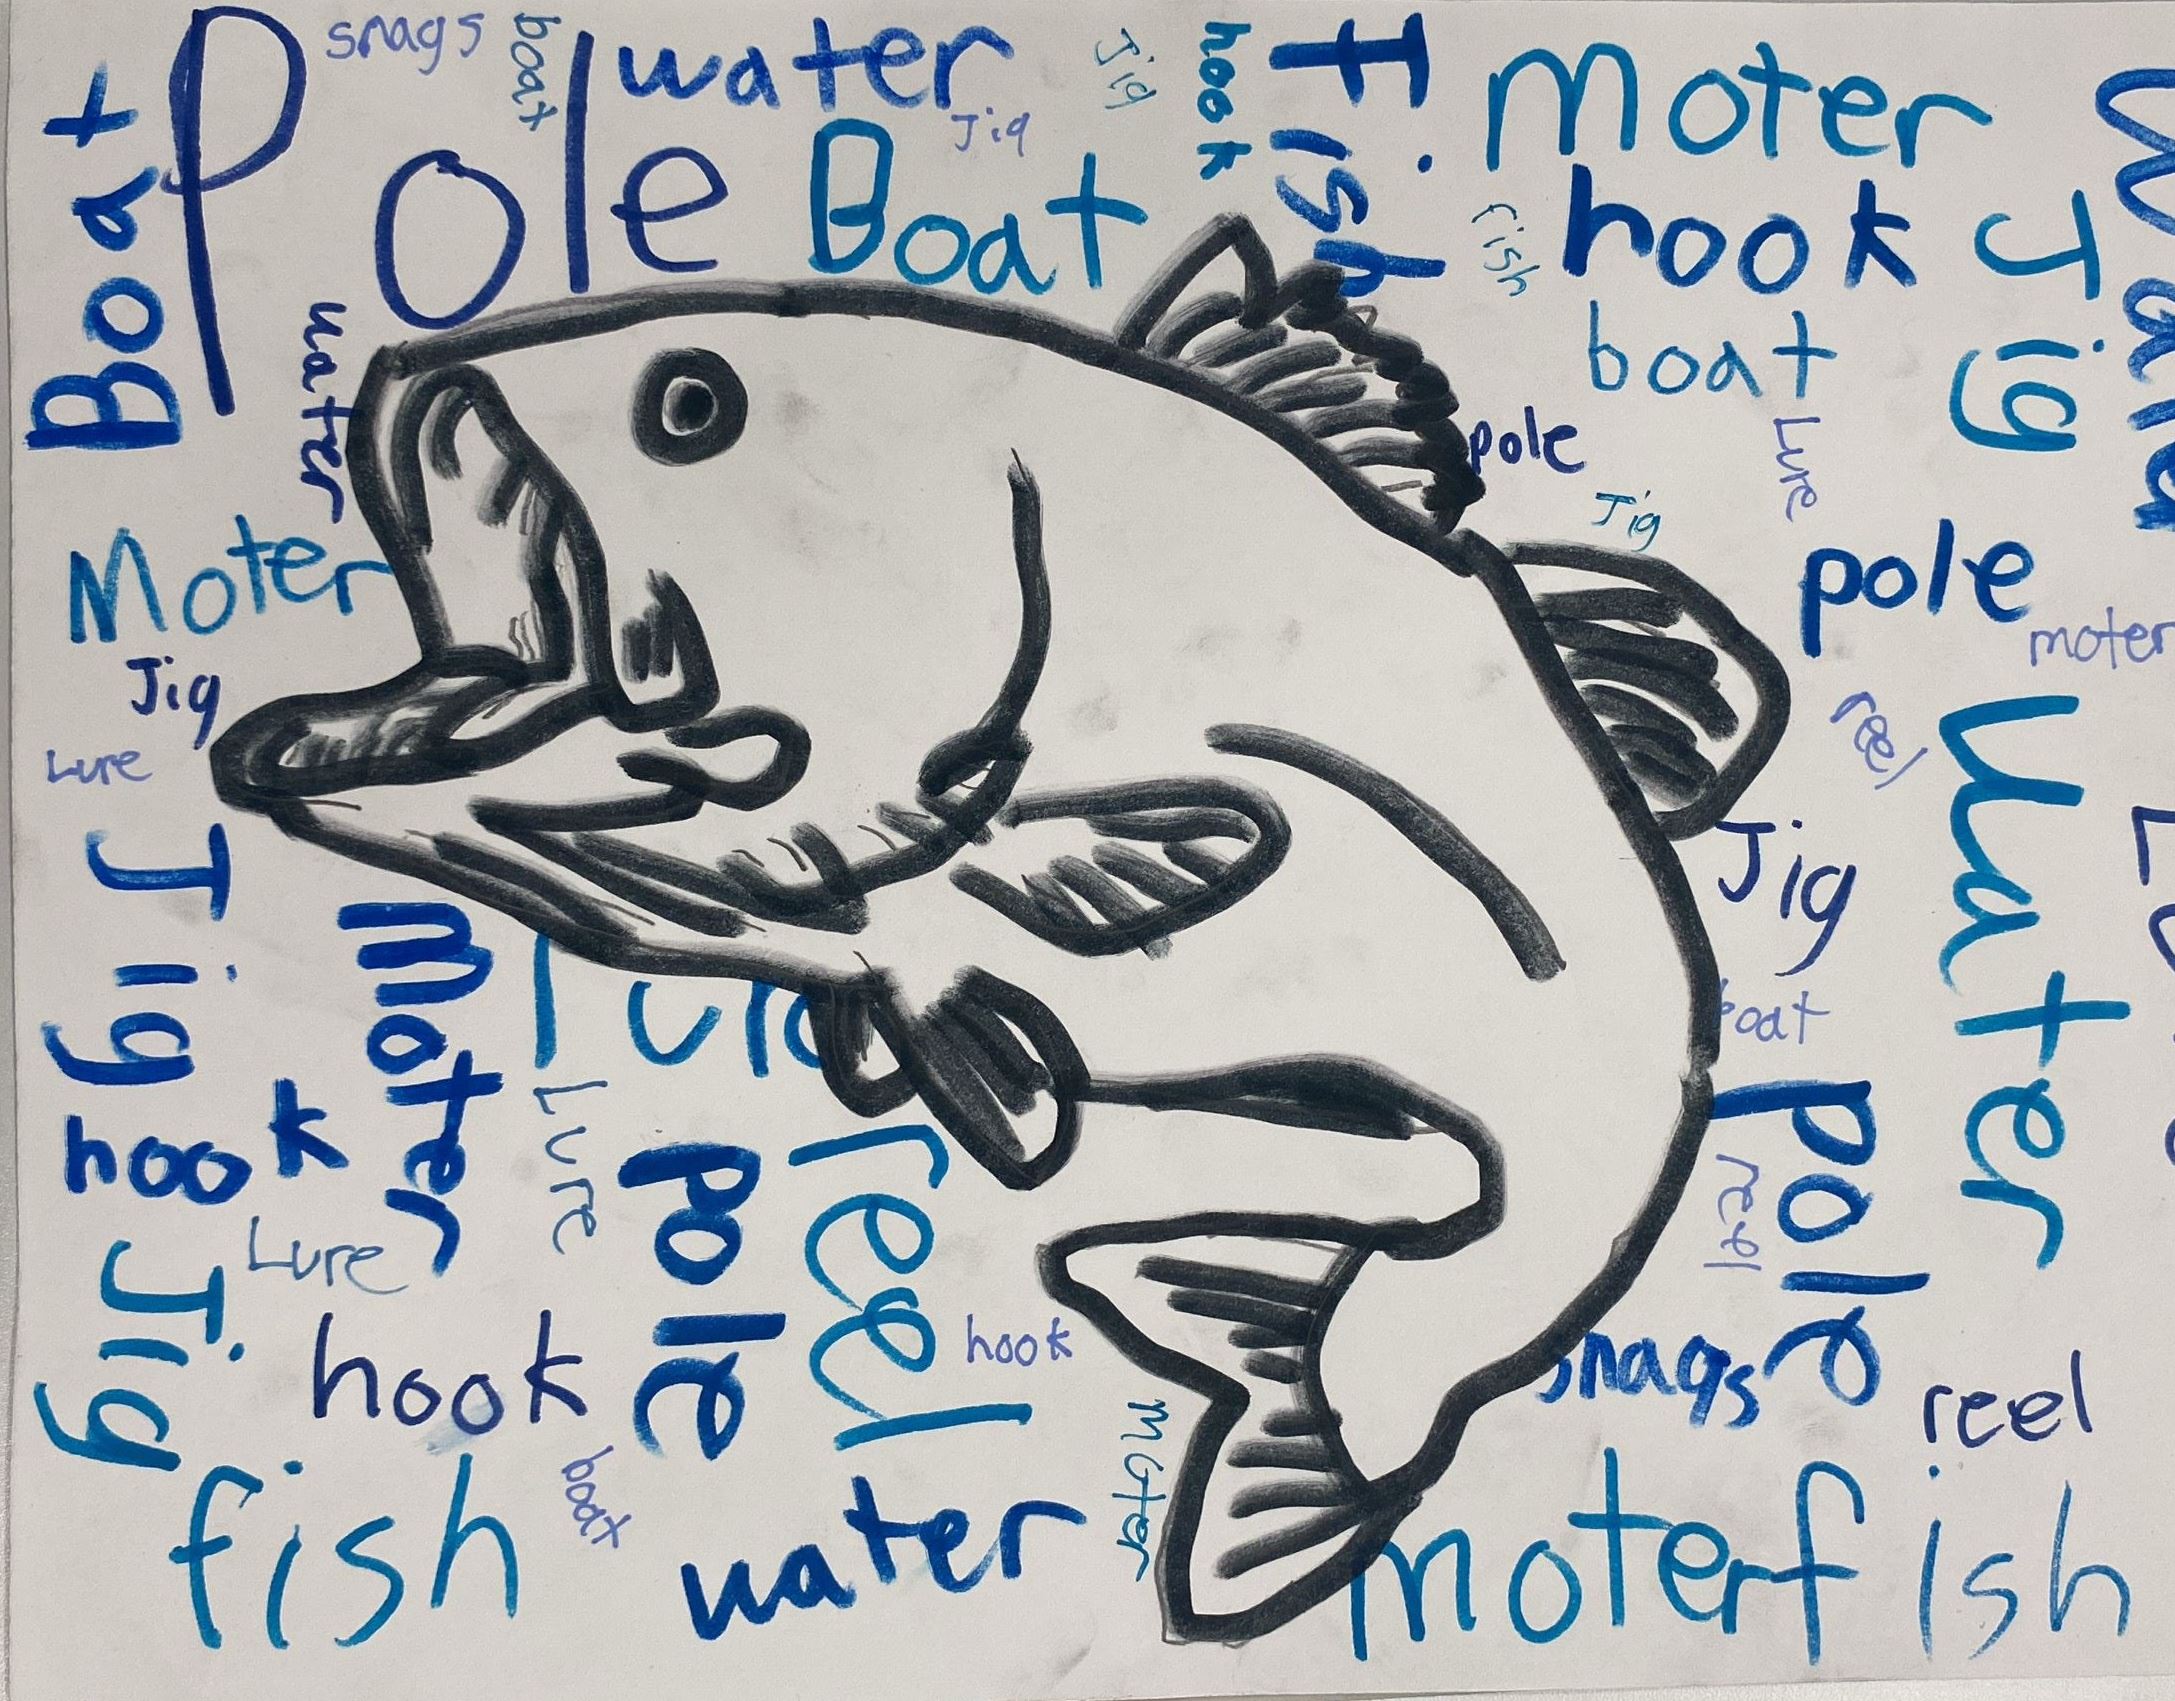 Boat
Pole
snags
boat
water
Jig
Boat
Jig
hook
Fish
Moter
hook
fish
Jig
boat
water
pole
Lure
Jig
pole
moter
Moter
Jig
Lure
reel
Water
Jig
Jig
Moter
boat
hook
Lure
pole
reel
pole
reel
Lure
Jig
hook
hook
snags
reel
fish
boat
water
Moter
moter
fish